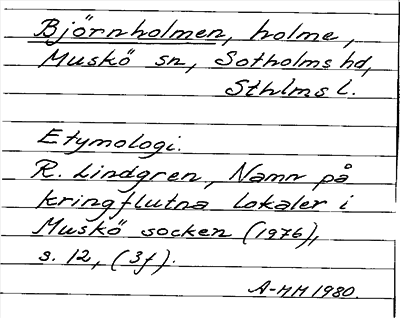 Björnholmen, holme,
Muskö sn, Sotholms hd,
Sthlms l.
Etymologi.
R. Lindgren, Namn på
kringflutna lokaler i
Muskö socken (1976),
s. 12, (3f).
A-HH 1980.